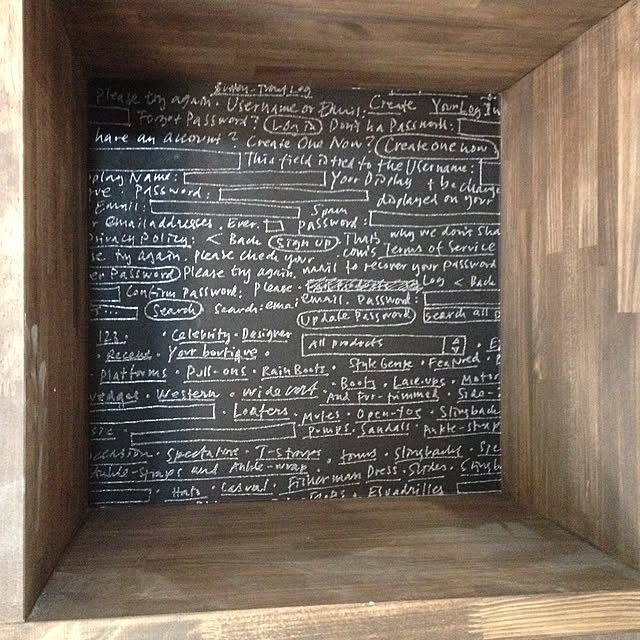 Please try again. Username or Email: Create Your Log In
Forgot Password? Log in Don't ha Password:
have an account? Create One Now? Create one now
This field is tied to the Username:
play Name: Your Display t be change
ve. Password: displayed on your
Email: Spam
r email addresses. Ever. password: why we don't sha
privacy Policy: < Back Sign up That's Terms of Service
se try again. please check your .com's
er Password Please try again. mail to recover your password
Confirm Password: Please. Log < Back
Search Search: emai email. Password: search all p
Update Password
123. Celebrity. Designer All products
. Record. Your boutique. Style Gense. Featured
Platforms. Pull-ons. Rain Boots.
vedges. Western. wide calf. Boots. Lace-ups. Motor
And Fur-trimmed. Side-
. Loafers. Mules. Open-toe. Slingback
Pumps. Sandals. Ankle-strap
ccasion. Spectators. T-straps. Slingbacks. Spe
Ankle-straps and Ankle-wrap. Dress. Slides. Slingb
. Casual. Fisherman
Espadrilles